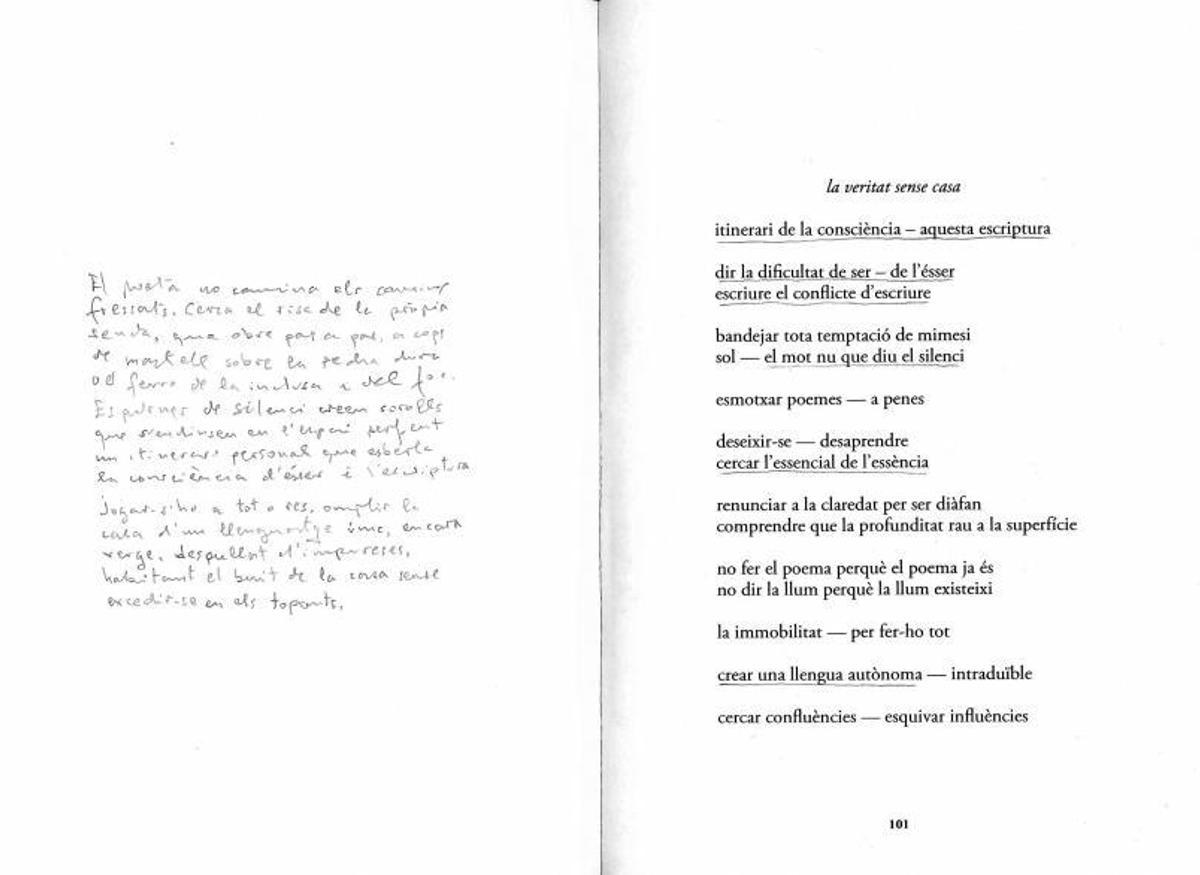 El poeta no camina els camins
fressats. Cerca el risc de la pròpia
senda, que obre pas a pas, a cops
de martell sobre la pedra dura
o el ferro de la inclusa i del foc.
Espurnes de silenci creen sorolls
que s'endinsen en l'espai perfent
un itinerari personal que esberla
la consciència d'ésser i l'escriptura
Jogar-s'ho a tot o res, omplir la
casa d'un llenguatge únic, encara
verge, despullat d'impureses,
habitant el buit de la casa sense
excedir-se en els topants.
la veritat sense casa
itinerari de la consciència – aquesta escriptura
dir la dificultat de ser – de l'ésser
escriure el conflicte d'escriure
bandejar tota temptació de mimesi
sol — el mot nu que diu el silenci
esmotxar poemes — a penes
deseixir-se — desaprendre
cercar l'essencial de l'essència
renunciar a la claredat per ser diàfan
comprendre que la profunditat rau a la superfície
no fer el poema perquè el poema ja és
no dir la llum perquè la llum existeixi
la immobilitat — per fer-ho tot
crear una llengua autònoma — intraduïble
cercar confluències — esquivar influències
101